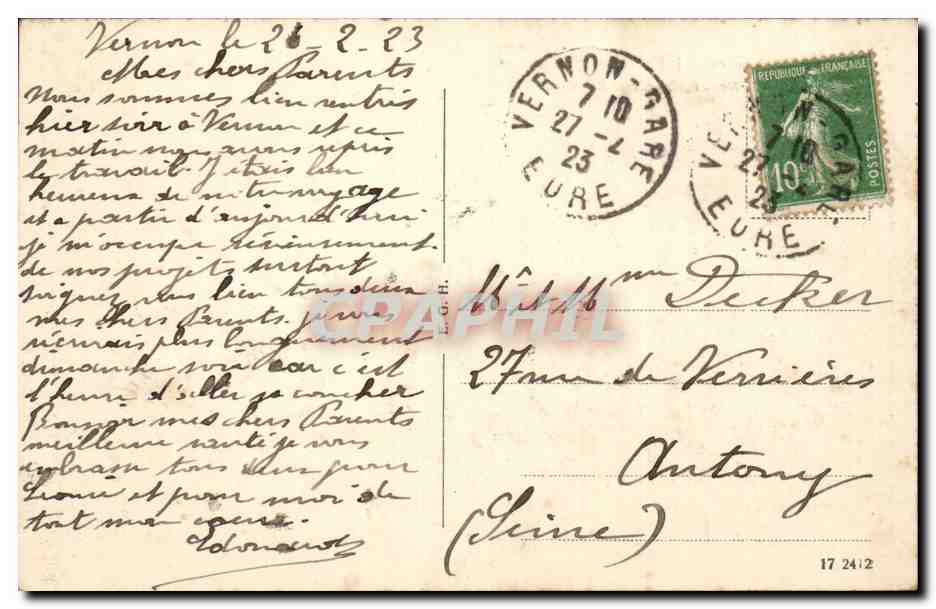 Vernon le 26-2-23
Mes chers Parents
Nous sommes bien rentrés
hier soir à Vernon et ce
matin nous avons repris
le travail. J'étais bien
heureux de notre voyage
et a partir d'aujourd'hui
je m'occupe sérieusement
de nos projets surtout
soignez vous bien tous deux
mes chers Parents. je vous
écrirais plus longuement
dimanche soir car c'est
l'heure d'aller se coucher
Bonsoir mes chers Parents
meilleure santé je vous
embrasse tous deux pour
et pour moi de
tout mon coeur.
Edouard
VERNON-GARE
7 10
27-2
23
EURE
REPUBLIQUE FRANÇAISE
10c
POSTES
VERNON GARE
7 10
27-2
23
EURE
Mr et Mme Decker
27 rue de Verrières
Antony
(Seine)
E.G.H.
CPAPHIL
17 2412